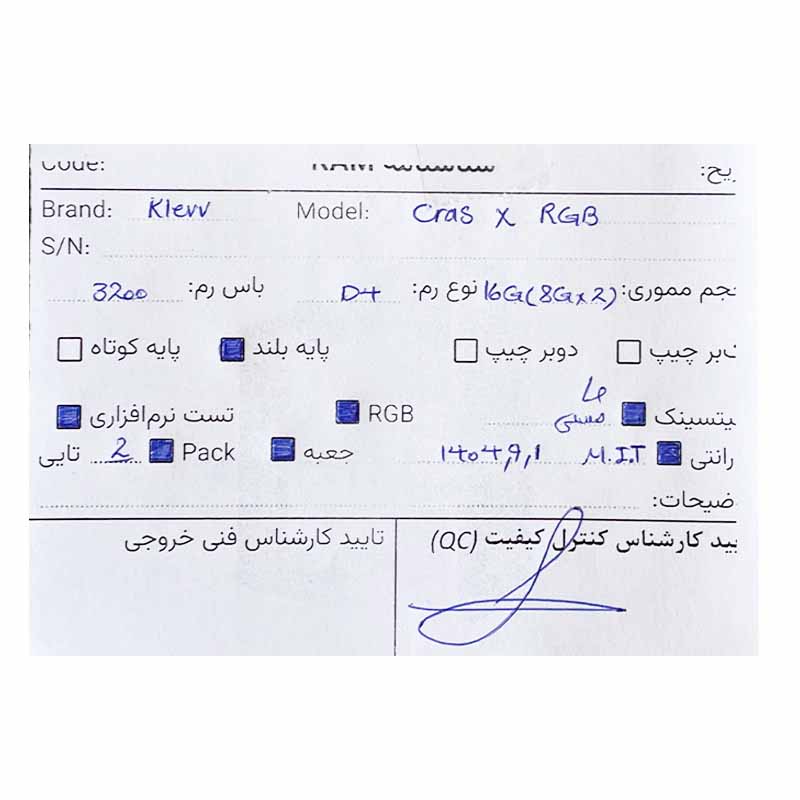 Code: شناسنامه RAM ریخ:
Brand: Klevv Model: Cras X RGB
S/N:
حجم مموری: 16G(8G×2) نوع رم: D4 باس رم: 3200
ک‌بر چیپ دوبر چیپ پایه بلند پایه کوتاه
یتسینک مسی RGB تست نرم‌افزاری
رانتی M.I.T 1404,9,1 جعبه Pack 2 تایی
ضیحات:
یید کارشناس کنترل کیفیت (QC) تایید کارشناس فنی خروجی